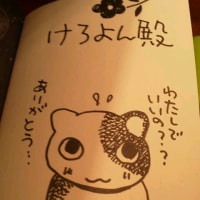 けろよん殿
わたしで
いいの??
ありがとう…